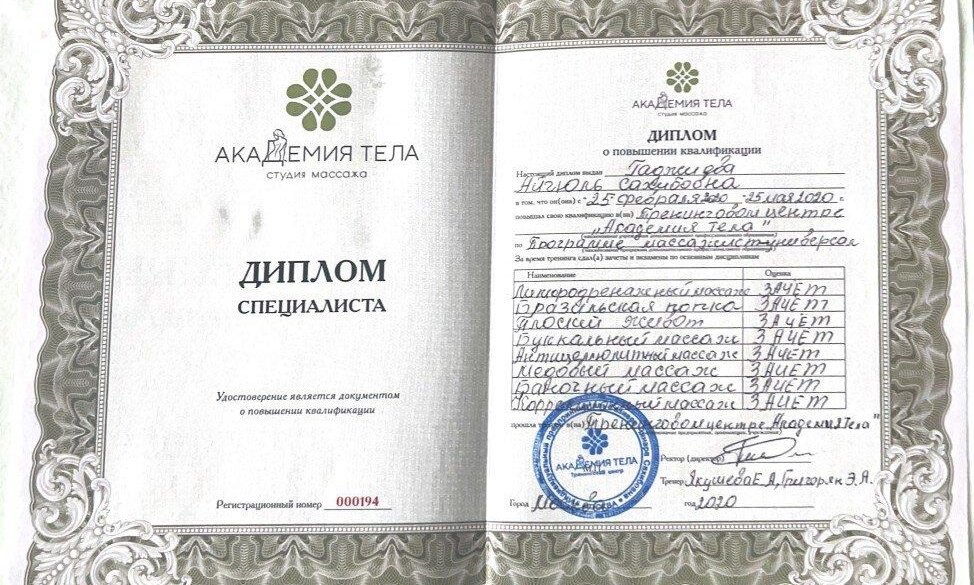 АКАДЕМИЯ ТЕЛА
студия массажа
ДИПЛОМ
СПЕЦИАЛИСТА
Удостоверение является документом
о повышении квалификации
Регистрационный номер 000194
АКАДЕМИЯ ТЕЛА
студия массажа
ДИПЛОМ
о повышении квалификации
Настоящий диплом выдан Гаджиева
Айгюль Сахибовна
в том, что он(она) с "25 февраля 2020 - 25 мая 2020
повышал свою квалификацию в(на) Тренинговом центре
"Академия тела"
по Программе массажист универсал
За время тренинга сдал(а) зачеты и экзамены по основным дисциплинам
Наименование Оценка
Лимфодренажный массаж ЗАЧЕТ
Бразильская попка ЗАЧЕТ
Плоский живот ЗАЧЕТ
Буккальный массаж ЗАЧЕТ
Антицеллюлитный массаж ЗАЧЕТ
Медовый массаж ЗАЧЕТ
Баночный массаж ЗАЧЕТ
массаж ЗАЧЕТ
прошла в(на) Тренинговом центре "Академия Тела"
АКАДЕМИЯ ТЕЛА
тренинговый центр
Ректор (директор)
Тренер Якушева Е.А, Григорян Э.А.
Город Москва год 2020